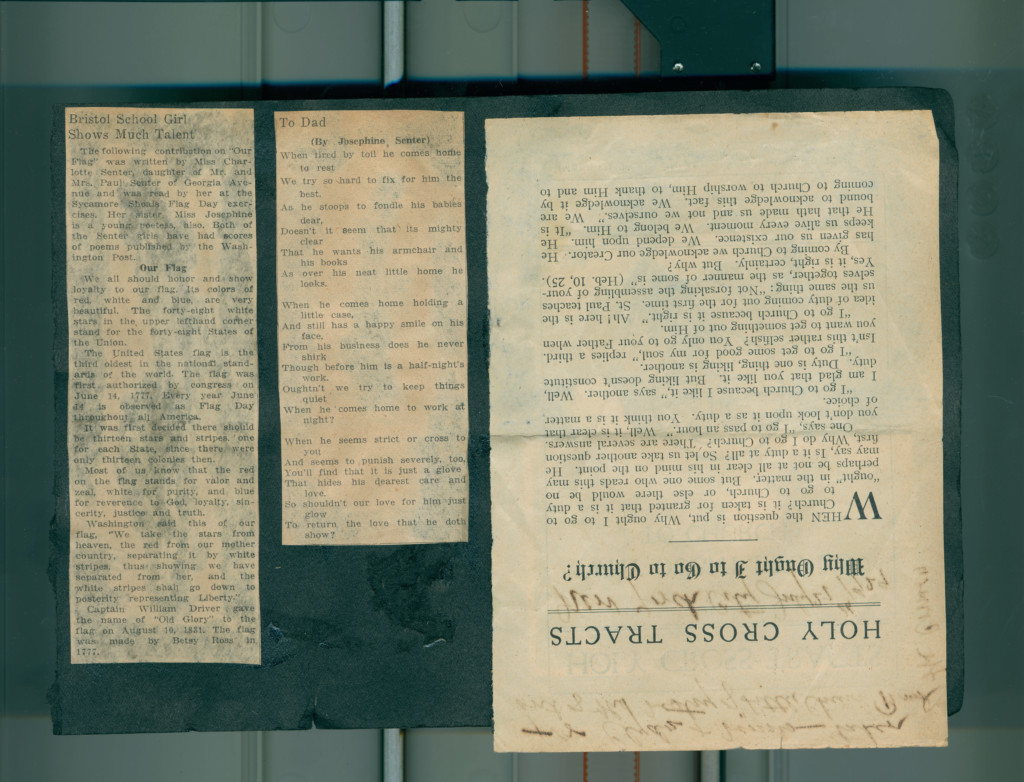 Bristol School Girl
Shows Much Talent
The following contribution on "Our
Flag" was written by Miss Char-
lotte Senter, daughter of Mr. and
Mrs. Paul Senter of Georgia Ave-
nue and was read by her at the
Sycamore Shoals Flag Day exer-
cises. Her sister, Miss Josephine
is a young poetess, also. Both of
the Senter girls have had scores
of poems published by the Wash-
ington Post.
Our Flag
We all should honor and show
loyalty to our flag. Its colors of
red, white and blue, are very
beautiful. The forty-eight white
stars in the upper lefthand corner
stand for the forty-eight States of
the Union.
The United States flag is the
third oldest in the national stand-
ards of the world. The flag was
first authorized by congress on
June 14, 1777. Every year June
14 is observed as Flag Day
throughout all America.
It was first decided there should
be thirteen stars and stripes, one
for each State, since there were
only thirteen colonies then.
Most of us know that the red
on the flag stands for valor and
zeal, white for purity, and blue
for reverence to God, loyalty, sin-
cerity, justice and truth.
Washington said this of our
flag, "We take the stars from
heaven, the red from our mother
country, separating it by white
stripes, thus showing we have
separated from her, and the
white stripes shall go down to
posterity representing Liberty."
Captain William Driver gave
the name of "Old Glory" to the
flag on August 10, 1831. The flag
was made by Betsy Ross in
1777.
To Dad
(By Josephine Senter)
When tired by toil he comes home
to rest
We try so hard to fix for him the
best.
As he stoops to fondle his babies
dear,
Doesn't it seem that its mighty
clear
That he wants his armchair and
his books
As over his neat little home he
looks.
When he comes home holding a
little case,
And still has a happy smile on his
face,
From his business does he never
shirk
Though before him is a half-night's
work.
Oughtn't we try to keep things
quiet
When he comes home to work at
night?
When he seems strict or cross to
you
And seems to punish severely, too,
You'll find that it is just a glove
That hides his dearest care and
love.
So shouldn't our love for him just
glow
To return the love that he doth
show?
HOLY CROSS TRACTS
Why Ought I to Go to Church?
WHEN the question is put, Why ought I to go to
Church? it is taken for granted that it is a duty
to go to Church, or else there would be no
"ought" in the matter. But some one who reads this may
perhaps be not at all clear in his mind on the point. He
may say, Is it a duty at all? So let us take another question
first, Why do I go to Church? There are several answers.
One says, "I go to pass an hour." Well, it is clear that
you don't look upon it as a duty. You think it is a matter
of choice.
"I go to Church because I like it," says another. Well,
I am glad that you like it. But liking doesn't constitute
duty. Duty is one thing, liking is another.
"I go to get some good for my soul," replies a third.
Isn't this rather selfish? You only go to your Father when
you want to get something out of Him.
"I go to Church because it is right." Ah! here is the
idea of duty coming out for the first time. St. Paul teaches
us the same thing: "Not forsaking the assembling of your-
selves together, as the manner of some is" (Heb. 10, 25).
Yes, it is right, certainly. But why?
By coming to Church we acknowledge our Creator. He
has given us our existence. We depend upon him. He
keeps us alive every moment. We belong to Him. "It is
He that hath made us and not we ourselves." We are
bound to acknowledge this fact. We acknowledge it by
coming to Church to worship Him, to thank Him and to